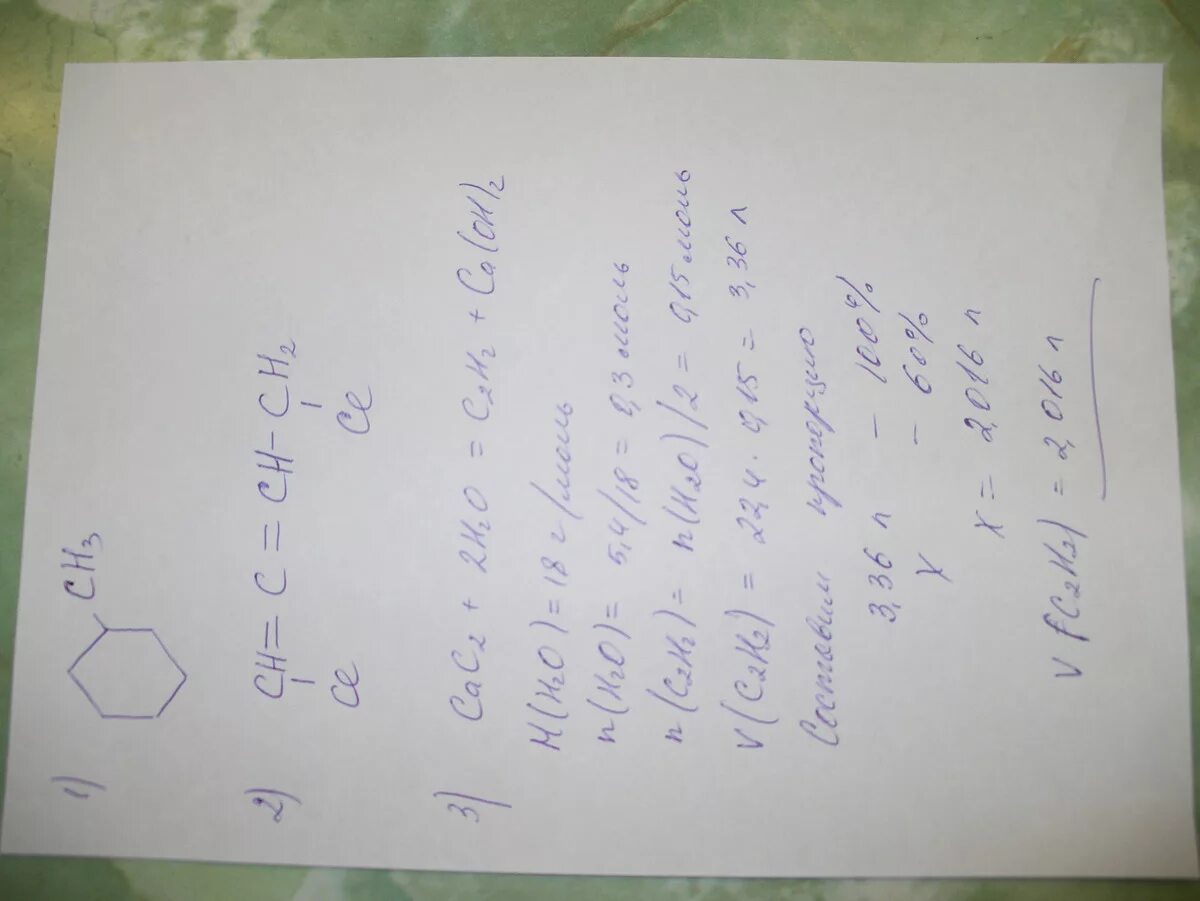 1) CH3
2) CH = C = CH - CH2
Cl Cl
3) CaC2 + 2H2O = C2H2 + Ca(OH)2
M(H2O) = 18 г/моль
n(H2O) = 5,4/18 = 0,3 моль
n(C2H2) = n(H2O)/2 = 0,15 моль
V(C2H2) = 22,4 · 0,15 = 3,36 л
Составим пропорцию
3,36 л - 100%
x - 60%
x = 2,016 л
V(C2H2) = 2,016 л